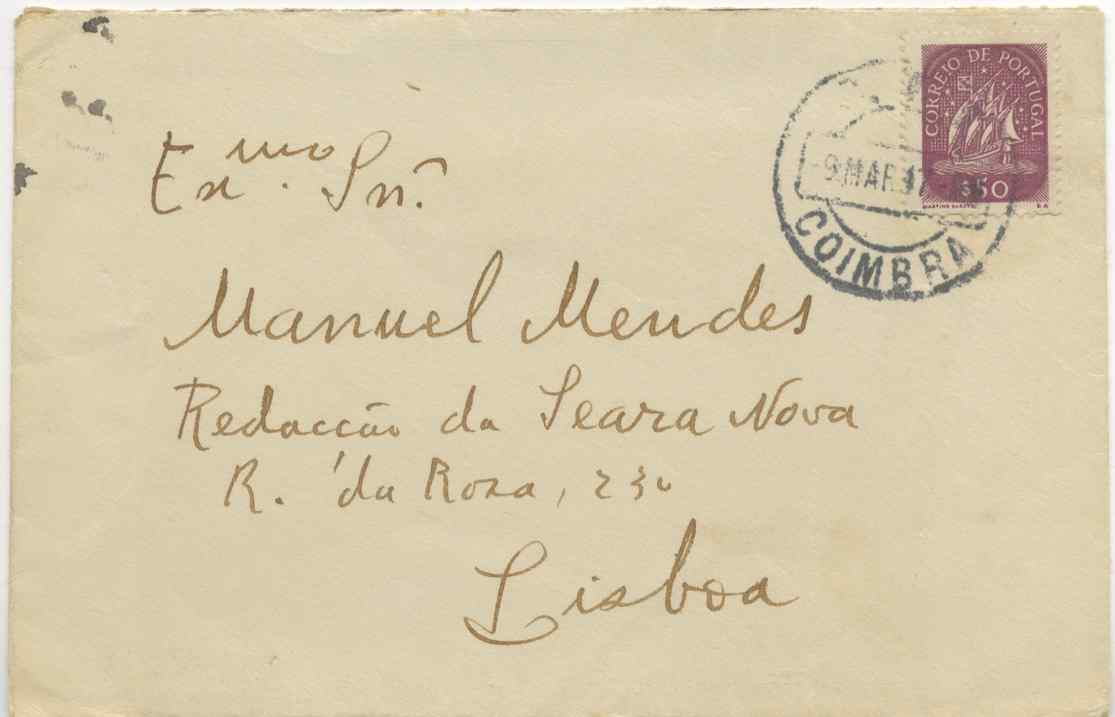 CORREIO DE PORTUGAL
$50
9 MAR 47
COIMBRA
Exmo. Snr.
Manuel Mendes
Redacção da Seara Nova
R. da Rosa, 230
Lisboa